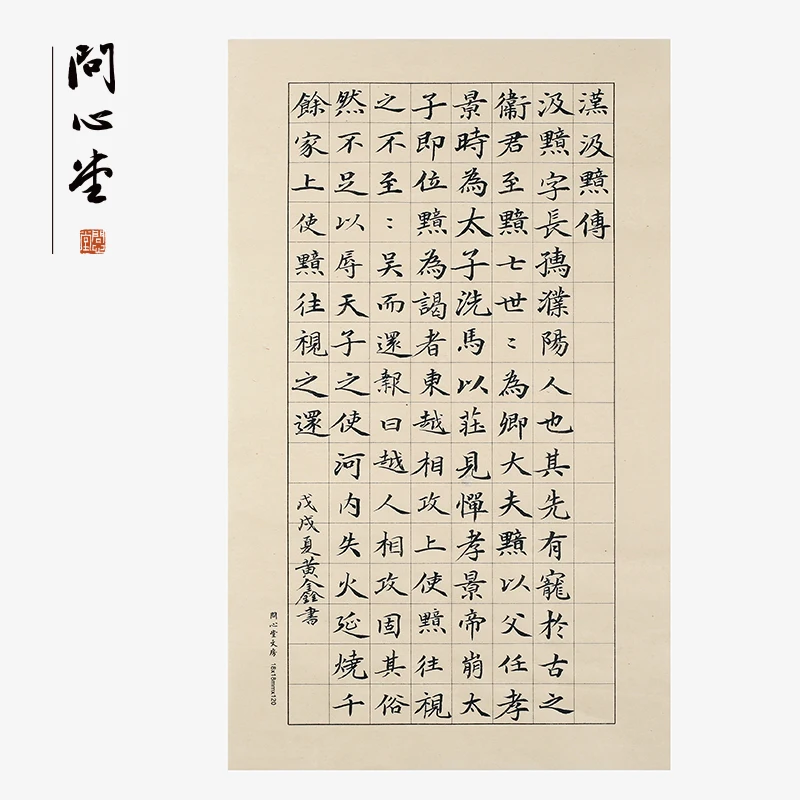 問心堂
漢汲黯傳
汲黯字長孺濮陽人也其先有寵於古之
衛君至黯七世〻為卿大夫黯以父任孝
景時為太子洗馬以莊見憚孝景帝崩太
子即位黯為謁者東越相攻上使黯往視
之不至〻吳而還報曰越人相攻固其俗
然不足以辱天子之使河内失火延燒千
餘家上使黯往視之還
戊戌夏黃金書
問心堂文房 18x18mmx120